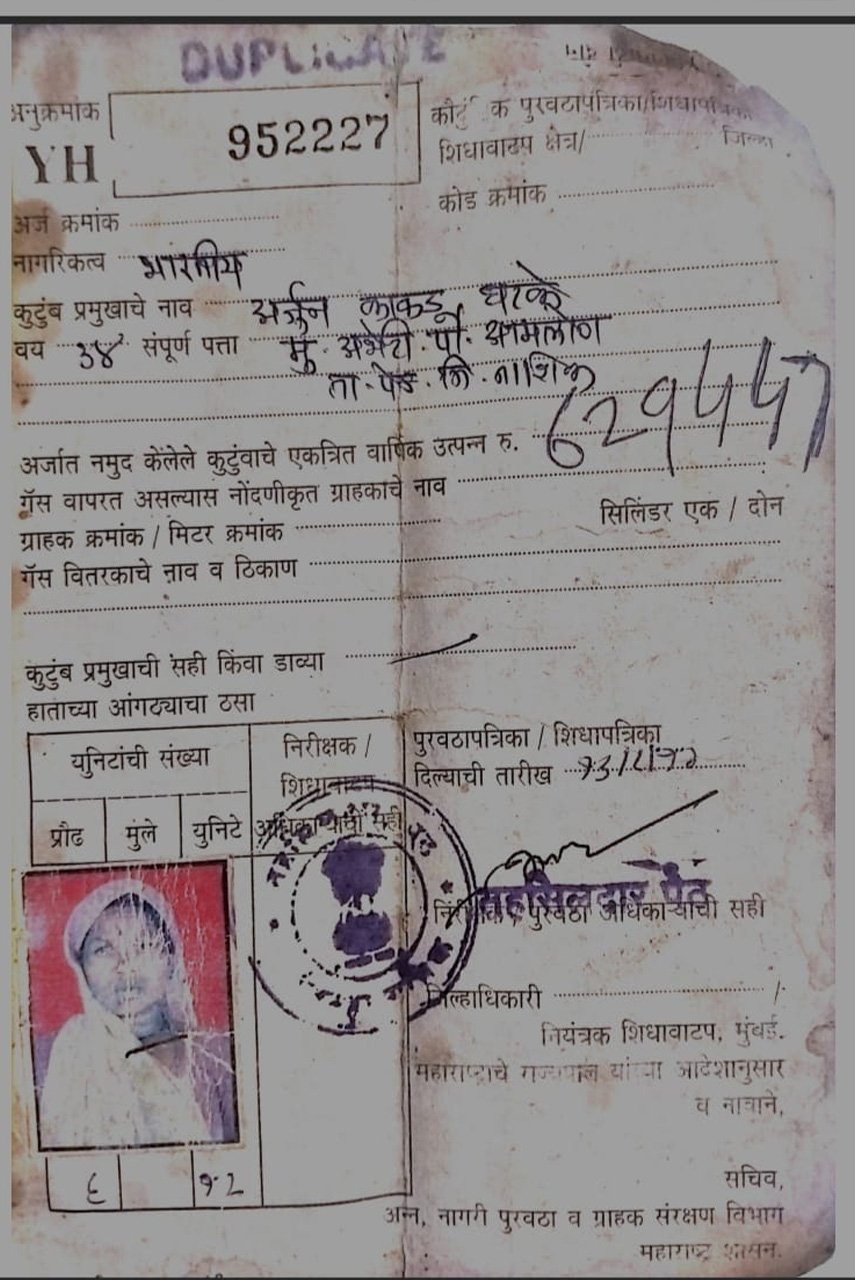 DUPLICATE
अनुक्रमांक
YH 952227
पुरवठापत्रिका/शिधापत्रिका
शिधावाटप क्षेत्र/ जिल्हा
कोड क्रमांक
अर्ज क्रमांक
नागरिकत्व भारतीय
कुटुंब प्रमुखाचे नाव अर्जुन काकडू
वय ३४ संपूर्ण पत्ता मु. अभेटी. पो. आमलोण
ता. पेठ. जि. नाशिक
629447
अर्जात नमुद केलेले कुटुंवाचे एकत्रित वार्षिक उत्पन्न रु.
गॅस वापरत असल्यास नोंदणीकृत ग्राहकाचे नाव
सिलिंडर एक / दोन
ग्राहक क्रमांक / मिटर क्रमांक
गॅस वितरकाचे नाव व ठिकाण
कुटुंब प्रमुखाची सही किंवा डाव्या
हाताच्या आंगठ्याचा ठसा
युनिटांची संख्या
निरीक्षक /
शिधावाटप
अधिकाऱ्याची सही
प्रौढ मुंले युनिटे
पुरवठापत्रिका / शिधापत्रिका
दिल्याची तारीख
तहसिलदार पेठ
पुरवठा अधिकाऱ्याची सही
जिल्हाधिकारी /
नियंत्रक शिधावाटप, मुंबई.
महाराष्ट्राचे राज्यपाल यांच्या आदेशानुसार
व नावाने,
६ १२
सचिव,
अन्न, नागरी पुरवठा व ग्राहक संरक्षण विभाग
महाराष्ट्र शासन.